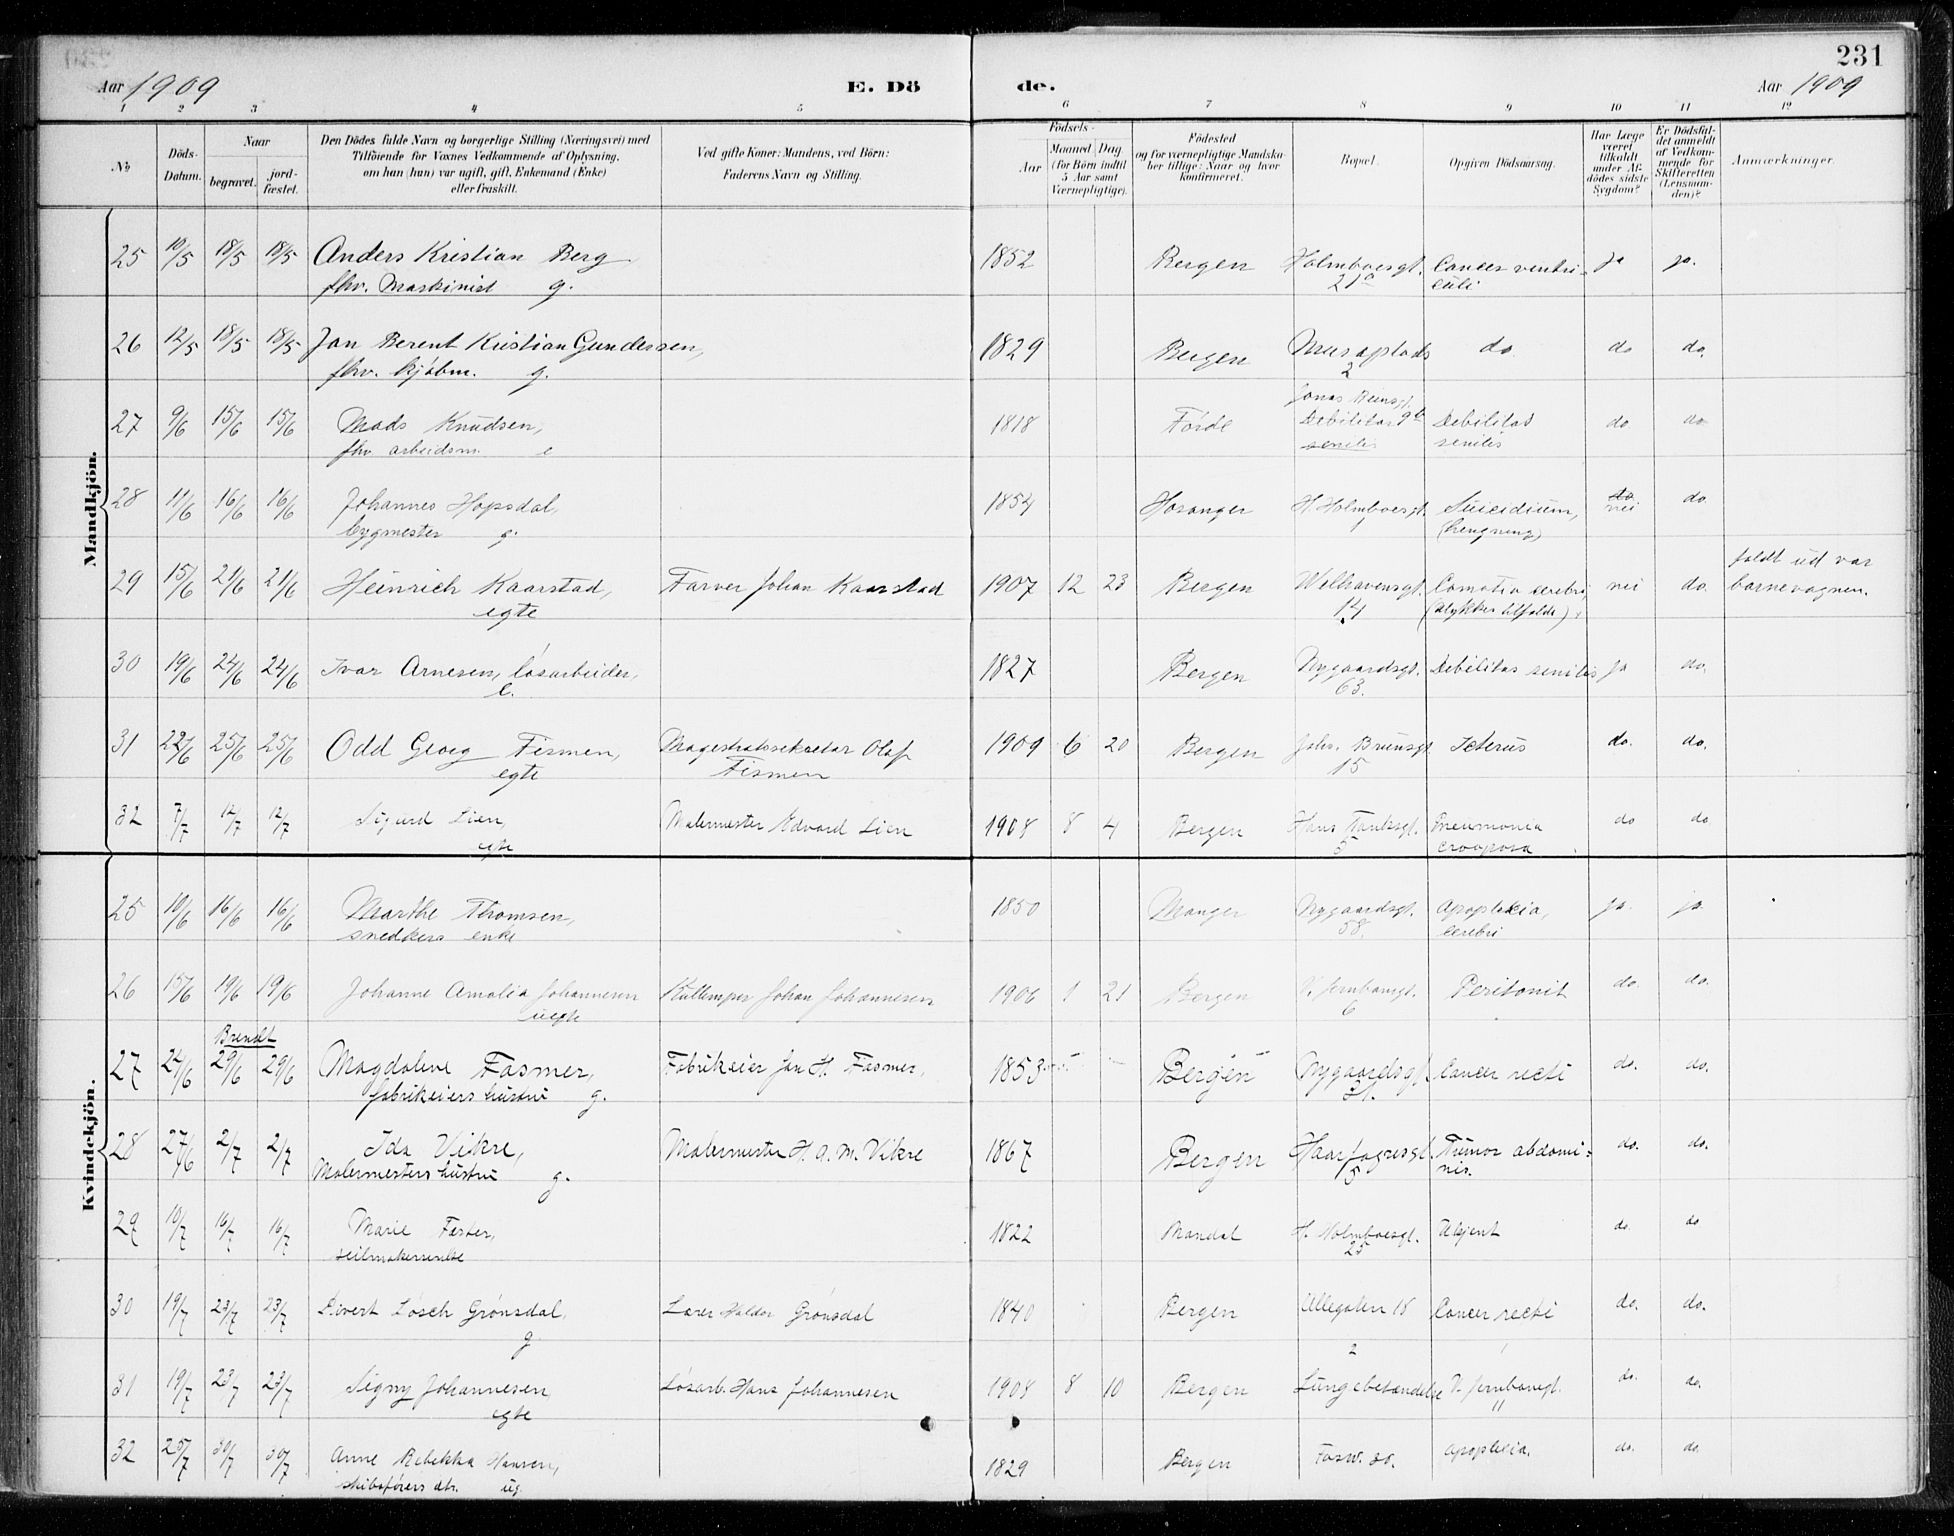 231
Aar 1909
E. Dö
de.
Aar 1909
1 2 3 4 5 6 7 8 9 10 11 12
No
Döds-Datum.
Naar
begravet.
jord-fæstet.
Den Dödes fulde Navn og borgerlige Stilling (Næringsvei) med
Tilföiende for Voxnes Vedkommende af Oplysning,
om han (hun) var ugift, gift, Enkemand (Enke)
eller fraskilt.
Ved gifte Koner: Mandens, ved Börn:
Faderens Navn og Stilling.
Födsels-
Aar
Maaned Dag
(for Börn indtil
5 Aar samt
Værnepligtige).
Födested
og for værnepligtige Mandska-
ber tillige: Naar og hvor
konfirmeret.
Bopæl.
Opgiven Dödsaarsag.
Har Læge
været
tilkaldt
under Af-
dödes sidste
Sygdom?
Er Dödsfal-
det anmeldt
af Vedkom-
mende for
Skifteretten
(Lensman-
den)?
Anmærkninger.
Mandkjön.
25 10/5 18/5 18/5 Anders Kristian Berg 1852 Bergen Holmboesgt. Cancer ventri- ja ja.
fhv. Maskinist g. 21a culi
26 12/5 18/5 18/5 Jan Berent Kristian Gundersen, 1829 Bergen Museplads do. do do.
fhv. kjøbm. g. 2
Jonas Reinsgt.
27 9/6 15/6 15/6 Mads Knudsen, 1818 Førde Debilitas 9b Debilitas do do
fhv. arbeidsm. e senilis senilis
28 11/6 16/6 16/6 Johannes Hopsdal, 1854 Hosanger H. Holmboesgt. Suicidium, do nei do.
bygmester g. 1 (hengning)
faldt ud var
29 15/6 21/6 21/6 Heinrich Kaarstad, Farver Johan Kaarstad 1907 12 23 Bergen Welhavensgt. Comotio cerebri nei do. barnevognen.
egte 14 (ulykkes tilfælde)
30 19/6 24/6 24/6 Ivar Arnesen, løsarbeider, 1827 Bergen Nygaardsgt. Debilitas senilis ja do.
e. 63.
31 22/6 25/6 25/6 Odd Georg Fismen, Magestratssekretær Olaf 1909 6 20 Bergen Johs. Brunsgt. Icterus do. do.
egte Fismen 15
32 7/7 12/7 12/7 Sigurd Lien, Malermester Edvard Lien 1908 8 4 Bergen Hans Tanksgt. Pneumonia do do
egte 5 crouposa
Kvindekjön.
25 10/6 16/6 16/6 Marthe Thomsen, 1850 Manger Nygaardsgt. Apoplexia, ja ja
snedkers enke 58. cerebri
26 15/6 19/6 19/6 Johanne Amalia Johannesen Kullemper Johan Johannesen 1906 1 21 Bergen V. Jernbanegt. Peritonit do. do.
uegte 6
Brendt
27 24/6 29/6 29/6 Magdalene Fasmer, Fabrikeier Jan H. Fasmer, 1853 Bergen Nygaardsgt. Cancer recti do. do.
fabrikeiers hustru g. 31.
28 27/6 2/7 2/7 Ida Vikre, Malermester H. A. M. Vikre 1867 Bergen Haarfagresgt. Tumor abdomi- do. do.
Malermesters hustru g. 5 nis.
29 10/7 16/7 16/7 Marie Fester, 1822 Mandal H. Holmboesgt. Ukjent do. do
seilmakerenke 25
30 19/7 23/7 23/7 Sivert Løsch Grønsdal, Lærer Haldor Grønsdal 1840 Bergen Allegaten 18 Cancer recti do. do.
g
2 1
31 19/7 23/7 23/7 Signy Johannesen, Løsarb. Hans Johannesen 1908 8 10 Bergen Lungebetændelse V. Jernbanegt. do. do.
egte 11
32 25/7 30/7 30/7 Anne Rebekka Hansen, 1829 Bergen Fosw. 20. apoplexia. do. do.
skibsførers dtr. ug.